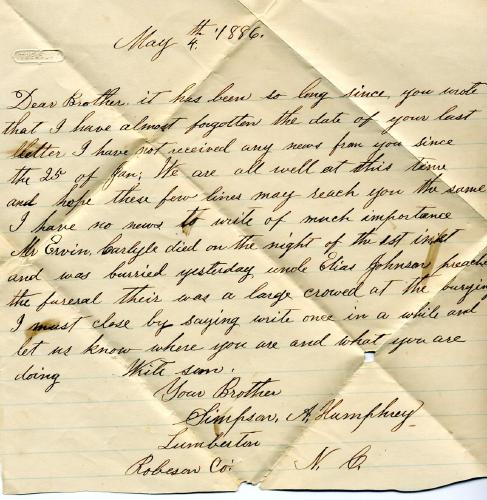 May 4.th 1886.
Dear Brother, it has been so long since, you wrote
that I have almost forgotten the date of your last
letter I have not received any news from you since
the 25 of Jan; We are all well at this time
and hope these few lines may reach you the same
I have no news to write of much importance
Mr Ervin, Carlyle died on the night of the 1st inst
and was burried yesturday uncle Elias Johnson preached
the funeral their was a large crowed at the burying
I must close by saying write once in a while and
let us know where you are and what you are
doing Write sun.
Your Brother
Simpson, A, Humphrey
Lumberton
Robeson Co: N. C.